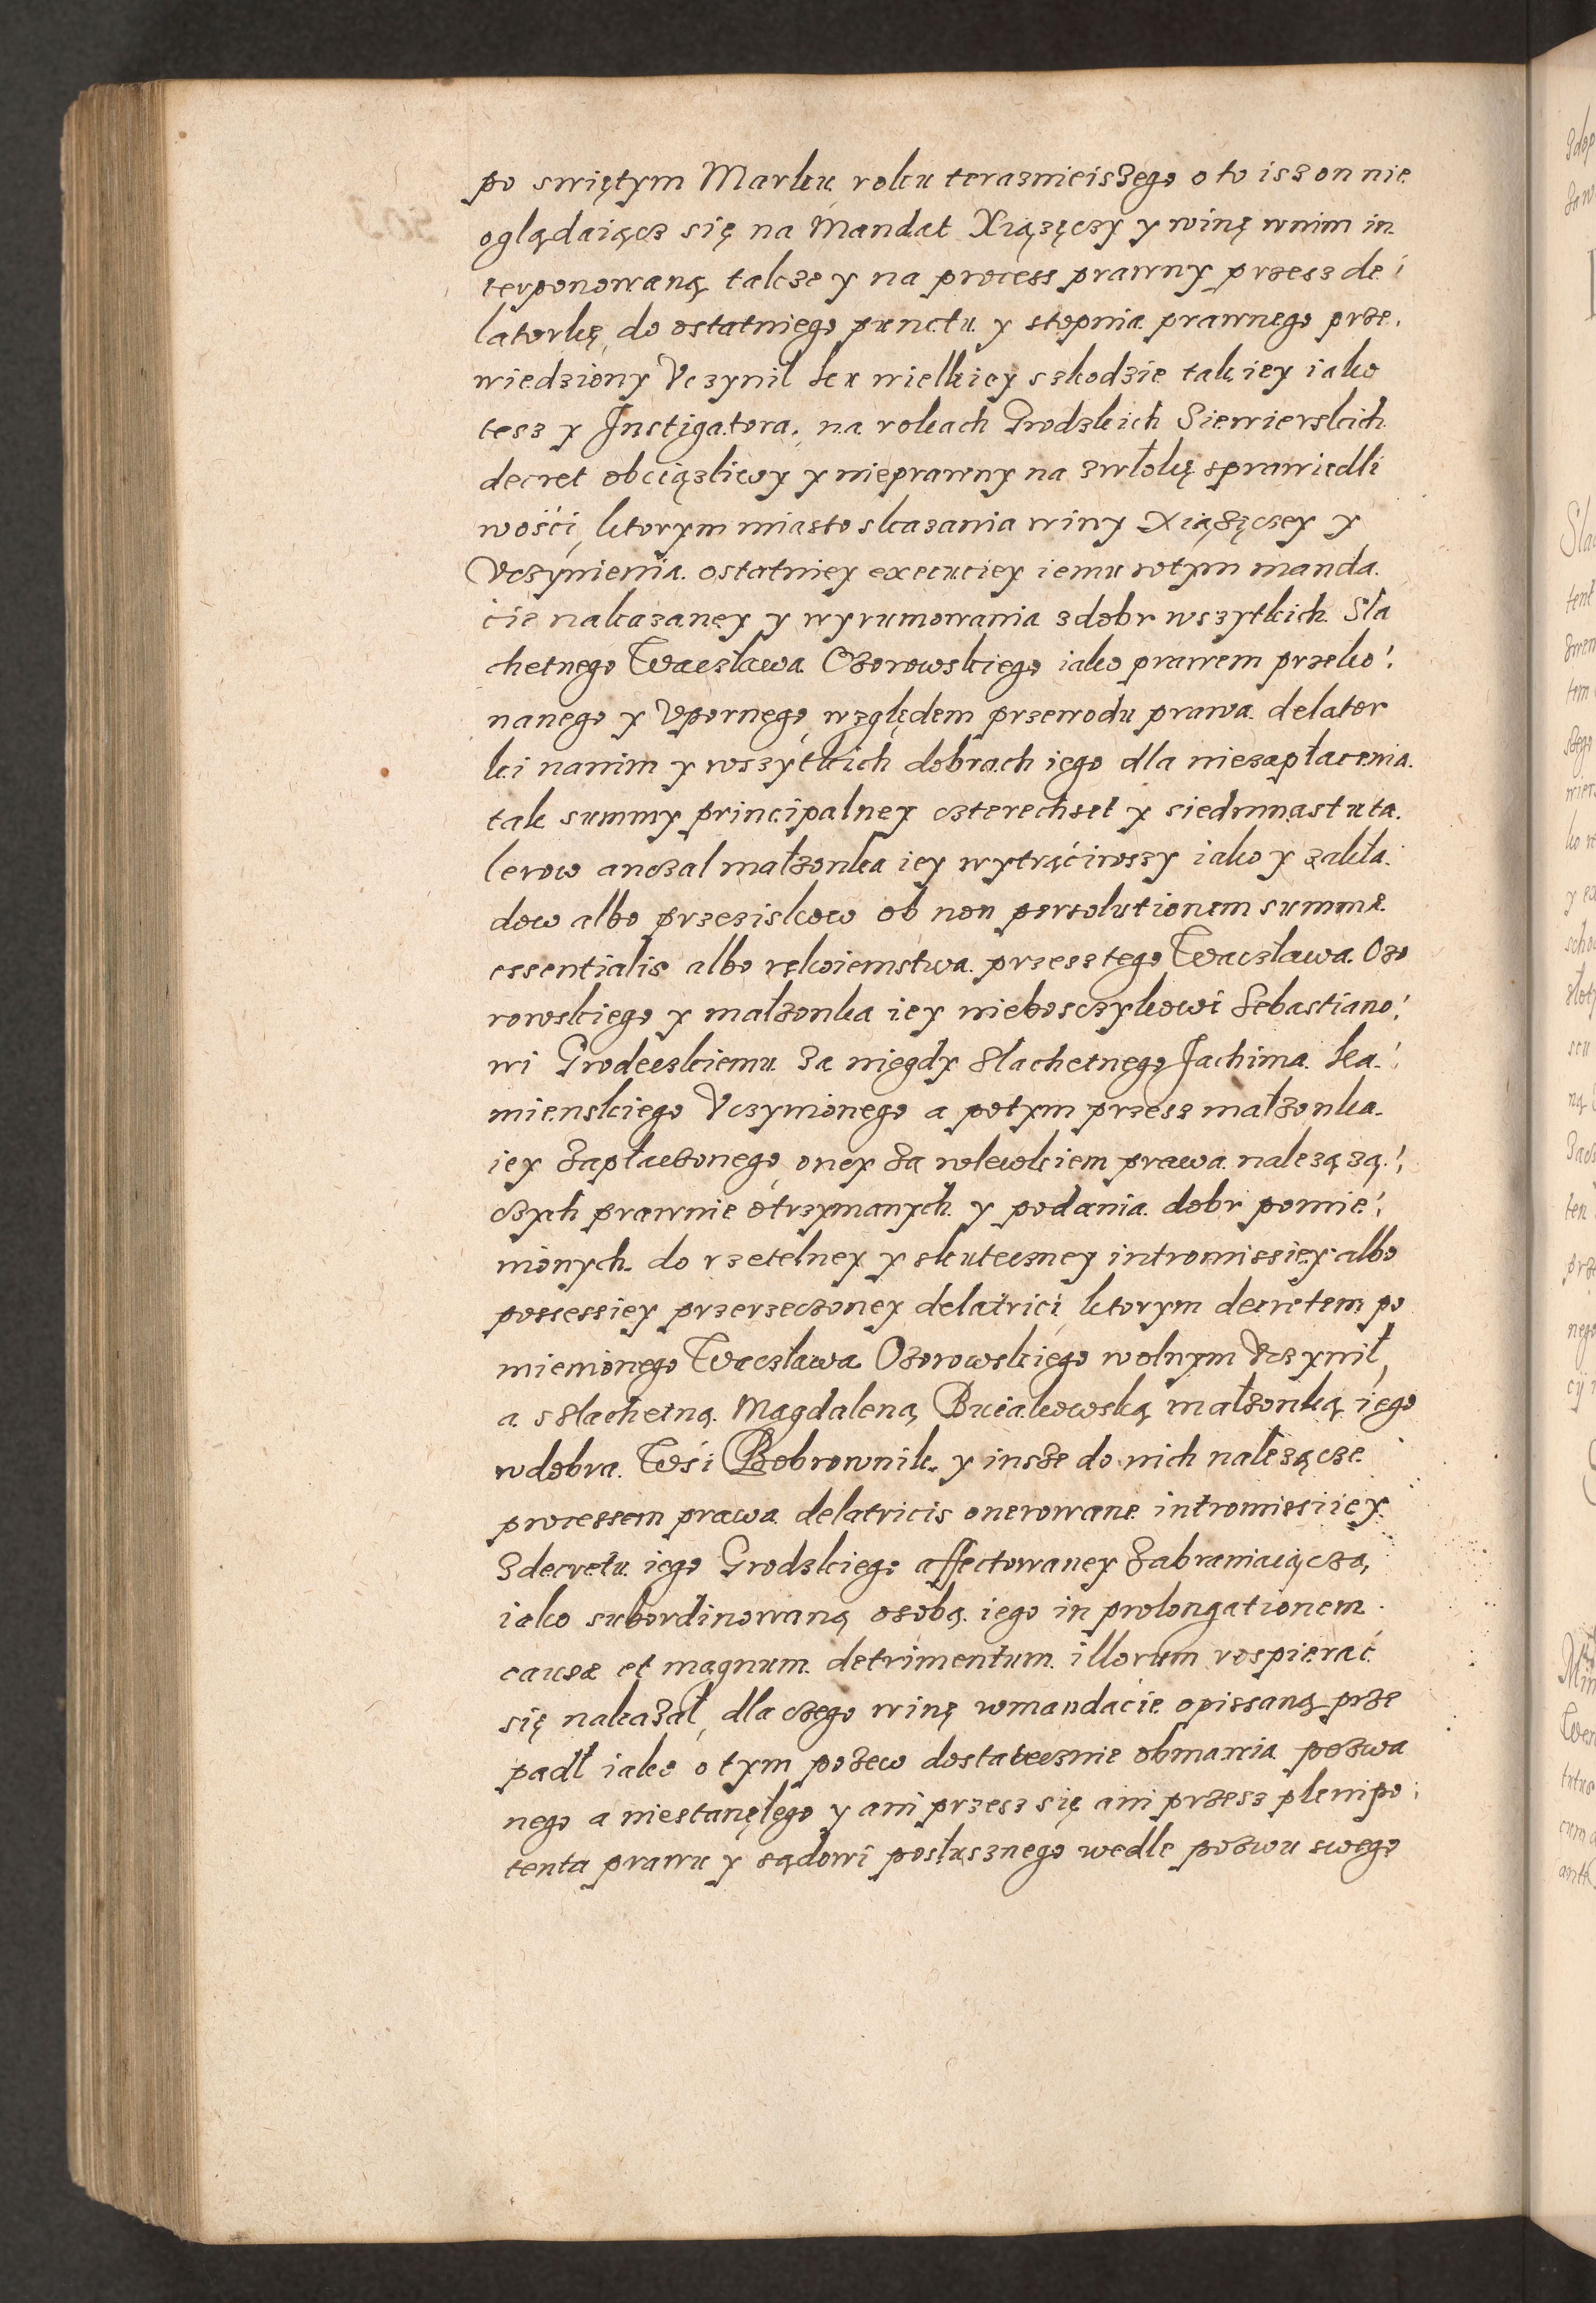 po swiętym Marku roku teraznieiszego o to isz on nie
oglądaiącz się na Mandat Xiązęczy y winę wnim in
terponowaną takze y na process prawny przesz de
latorkę, do ostatniego punctu y stopnia prawnego prze
wiedziony Vczynil ku wielkiey szkodzie tak iey iako
tesz y Jnstigatora, na rokach Grodzkich Siewierskich
decret obciązliwy y nieprawny na zwłokę sprawiedli
wości, ktorym miasto skazania winy Xiązęczey y
Vczynienia ostatniey execuciey iemu wtym manda
cie nakazaney y wyrumowania zdobr wszytkich Sla
chetnego Wacława Ozorowskiego iako prawem przeko
nanego y Vpornego, względem przewodu prawa delator
ki nanim y wszytkich dobrach iego dla niezapłacenia
tak summy principalney czterechset y siedmnastu ta
lerow anczal małzonka iey wytrąciwszy iako y zakła
dow albo przeziskow ob non persolutionem summæ
essentialis albo rękoiemstwa przesz tego Waczlawa Ozo
rowskiego y małzonka iey nieboszczykowi Sebastiano
wi Grodeczkiemu za niegdy Slachetnego Jachima Ka
mienskiego Vczynionego a potym przesz małzonka
iey Zapłaczonego, oney za wlewkiem prawa nalezą zą
czych prawnie otrzymanych y podania dobr pomie
nionych do rzetelney y skuteczney intromissiey albo
possessiey przerzeczoney delatrici, ktorym decretem po
mienionego Waczława Ozorowskiego wolnym Vczynił,
a szlachetną Magdaleną Bucakowską małzonką iego
wdobra Wsi Bobrownik y insze do nich nalezącze
processem prawa delatricis onerowane intromissiiey
Zdecretu iego Grodzkiego affectowaney Zabraniaiącza,
iako subordinowaną osobą iego in prolongationem
causæ et magnum detrimentum illorum rospierać
się nakazał, dla czego winę wmandacie opissaną prze
padł iako o tym pozew dostatecznie obmawia pozwa
nego a niestanęłego y ani przesz się ani przesz plenipo
tenta prawu y sądowi posłusznego wedle pozwu swego